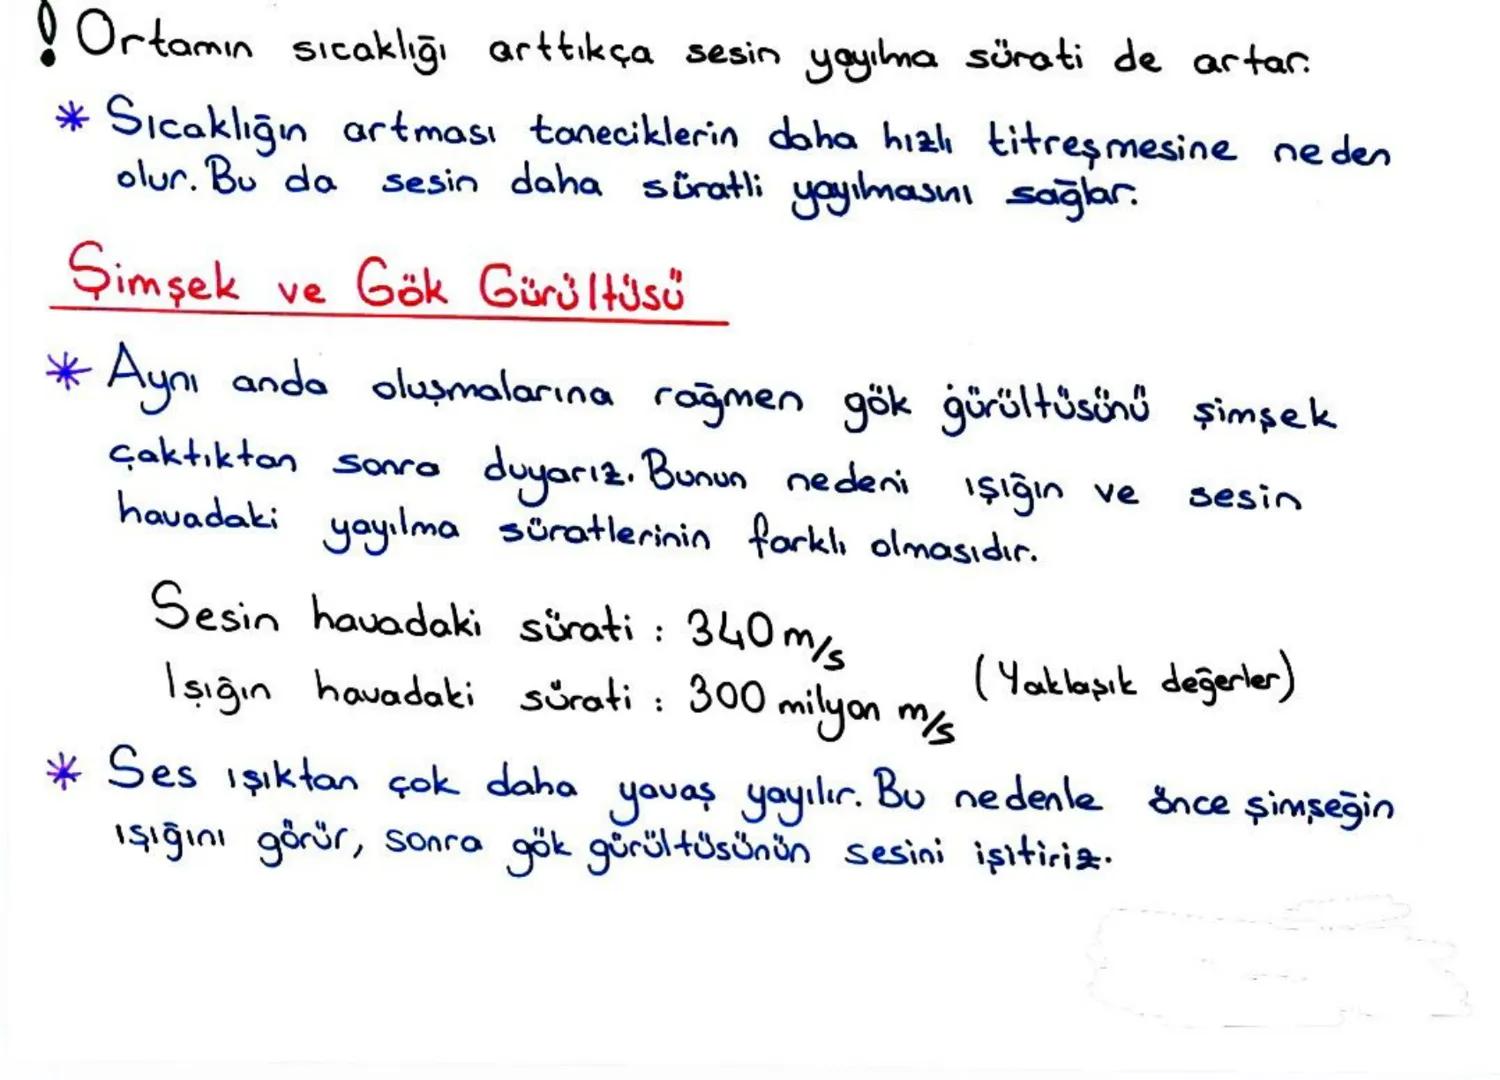 ! Ortamın sıcaklığı arttıkça sesin yayılma sürati de artar.
* Sıcaklığın artması taneciklerin daha hızlı titreşmesine neden
olur. Bu da sesin daha süratli yayılmasını sağlar.
Şimşek ve Gök Gürültüsü
* Aynı anda oluşmalarına rağmen gök gürültüsünü şimşek
çaktıktan sonra duyarız. Bunun nedeni ışığın ve sesin
havadaki yayılma süratlerinin farklı olmasıdır.
Sesin havadaki sürati : 340 m/s
Işığın havadaki sürati : 300 milyon m/s (Yaklaşık değerler)
* Ses ışıktan çok daha yavaş yayılır. Bu nedenle önce şimşeğin
ışığını görür, sonra gök gürültüsünün sesini işitiriz.